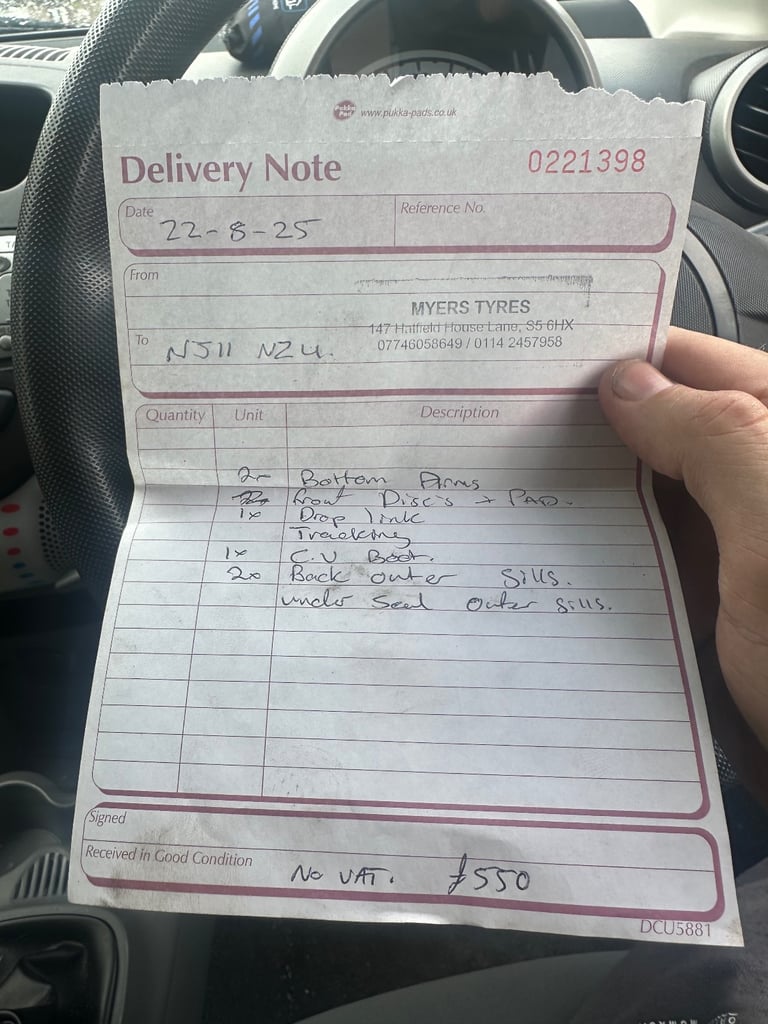 Pukka Pad www.pukka-pads.co.uk
Delivery Note 0221398
Date 22-8-25 Reference No.
From
MYERS TYRES
147 Hatfield House Lane, S5 6HX
07746058649 / 0114 2457958
To NJ11 NZU.
Quantity Unit Description
2x Bottom Arms
front Disc's + PAD.
1x Drop link
Tracking
1x C.V Boot.
2x Back outer sills.
under seal outer sills.
Signed
Received in Good Condition No VAT. £550
DCU5881